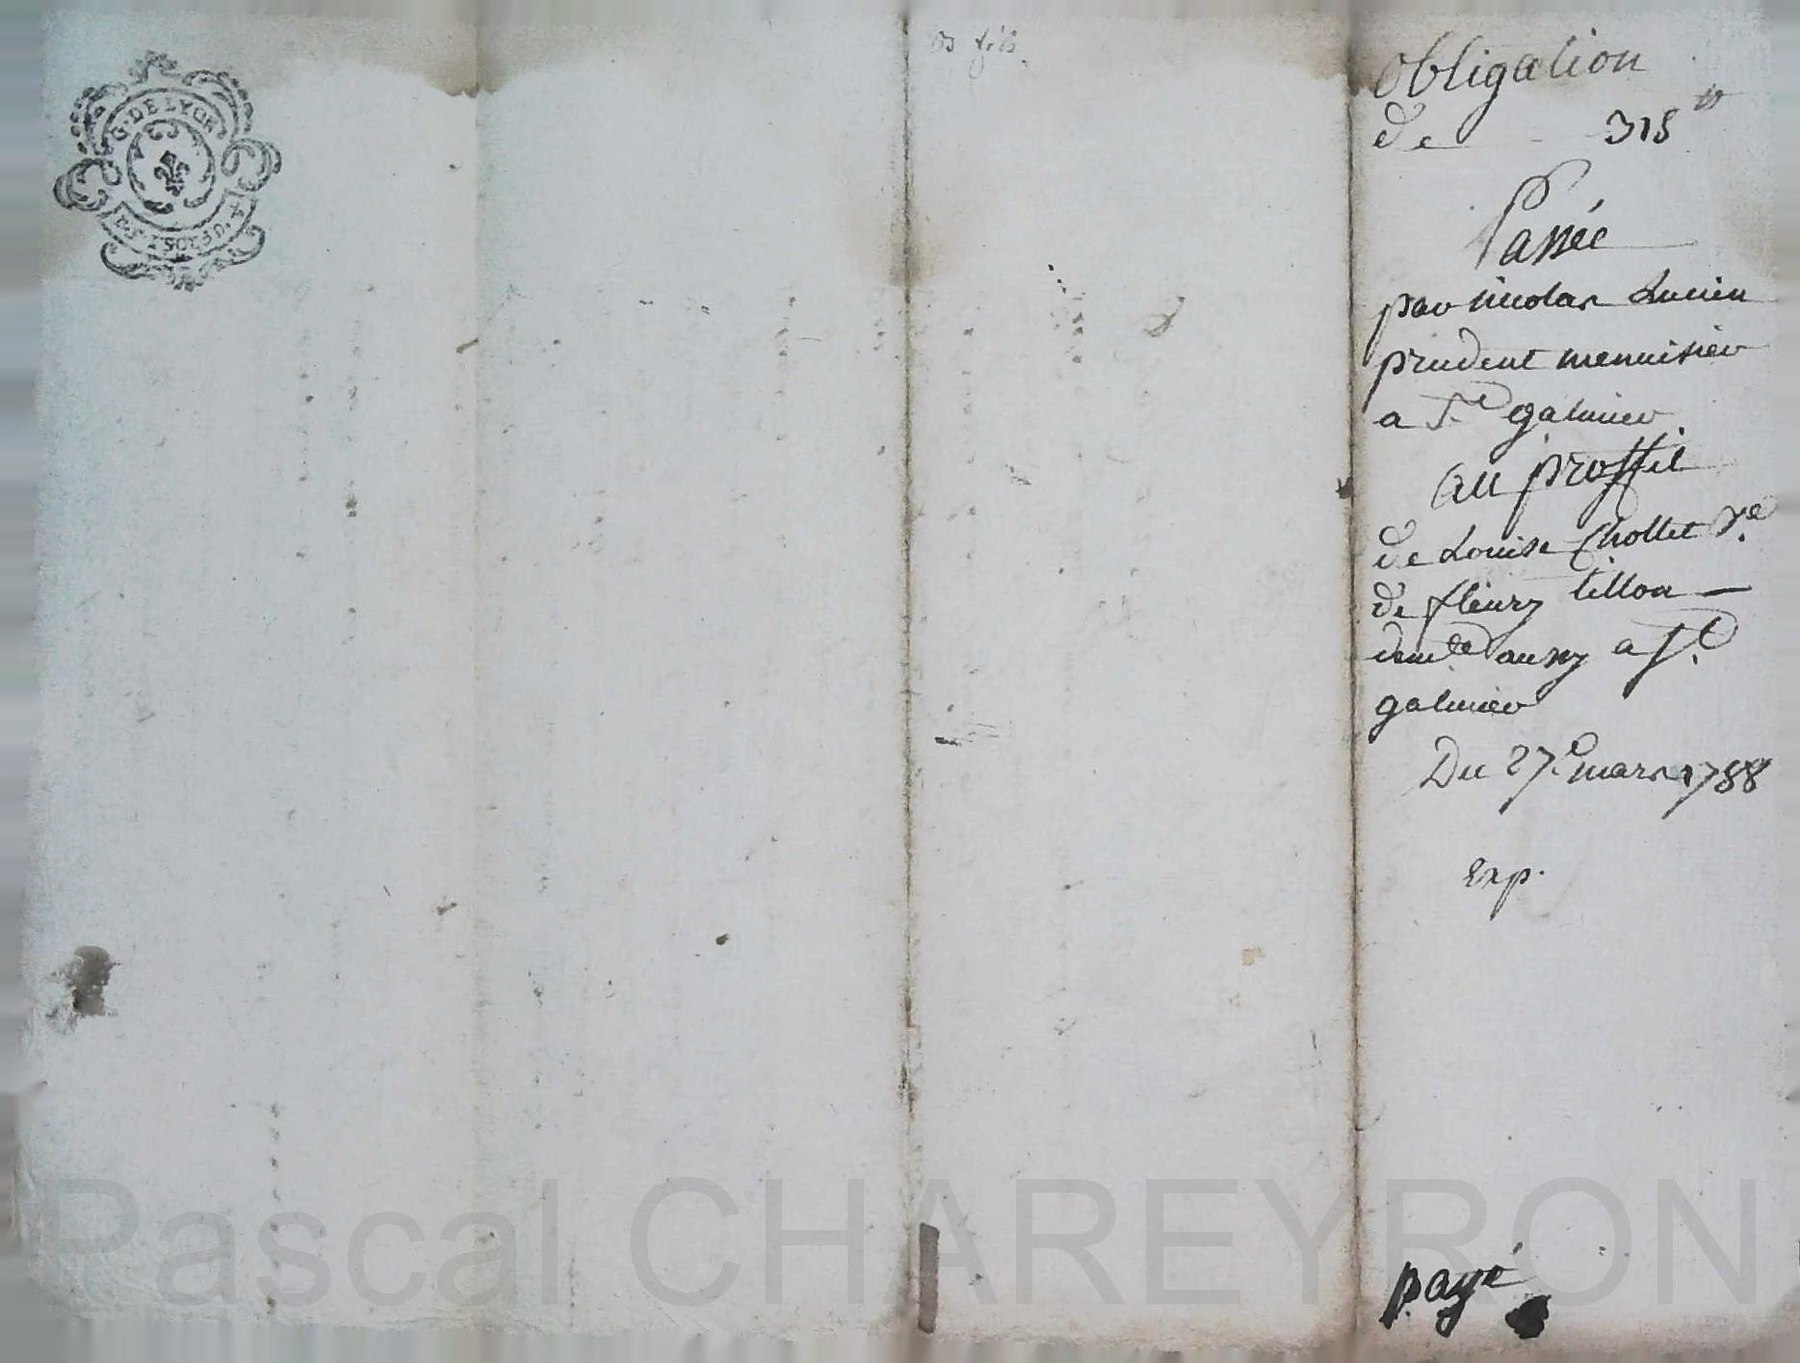 G. DE LYON
obligation
de 318 ₶
Passée
par nicolas Lucien
prudent menuisier
a St galmier
au proffit
de Louise Chollet Ve
de fleury tillon —
demte aussy a St
galmier
Du 27e mars 1788
Exp.
payé
Pascal CHAREYRON